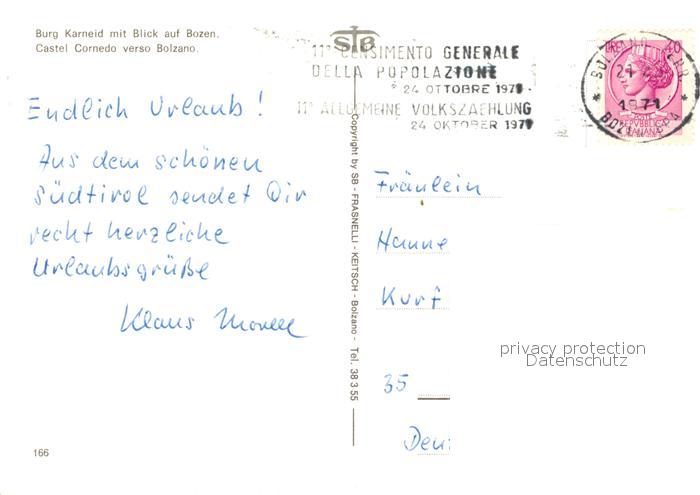 Burg Karneid mit Blick auf Bozen.
Castel Cornedo verso Bolzano.
STB
11° CENSIMENTO GENERALE
DELLA POPOLAZIONE
24 OTTOBRE 1971
11° ALLGEMEINE VOLKSZAEHLUNG
24 OKTOBER 1971
1971
REPVBBLICA
ITALIANA
Endlich Urlaub!
Aus dem schönen
Südtirol sendet Dir
recht herzliche
Urlaubsgrüße
Klaus
166
Copyright by SB - FRASNELLI - KEITSCH - Bolzano - Tel. 38 3 55
Fräulein
Hanne
Kurf
35
privacy protection
Datenschutz